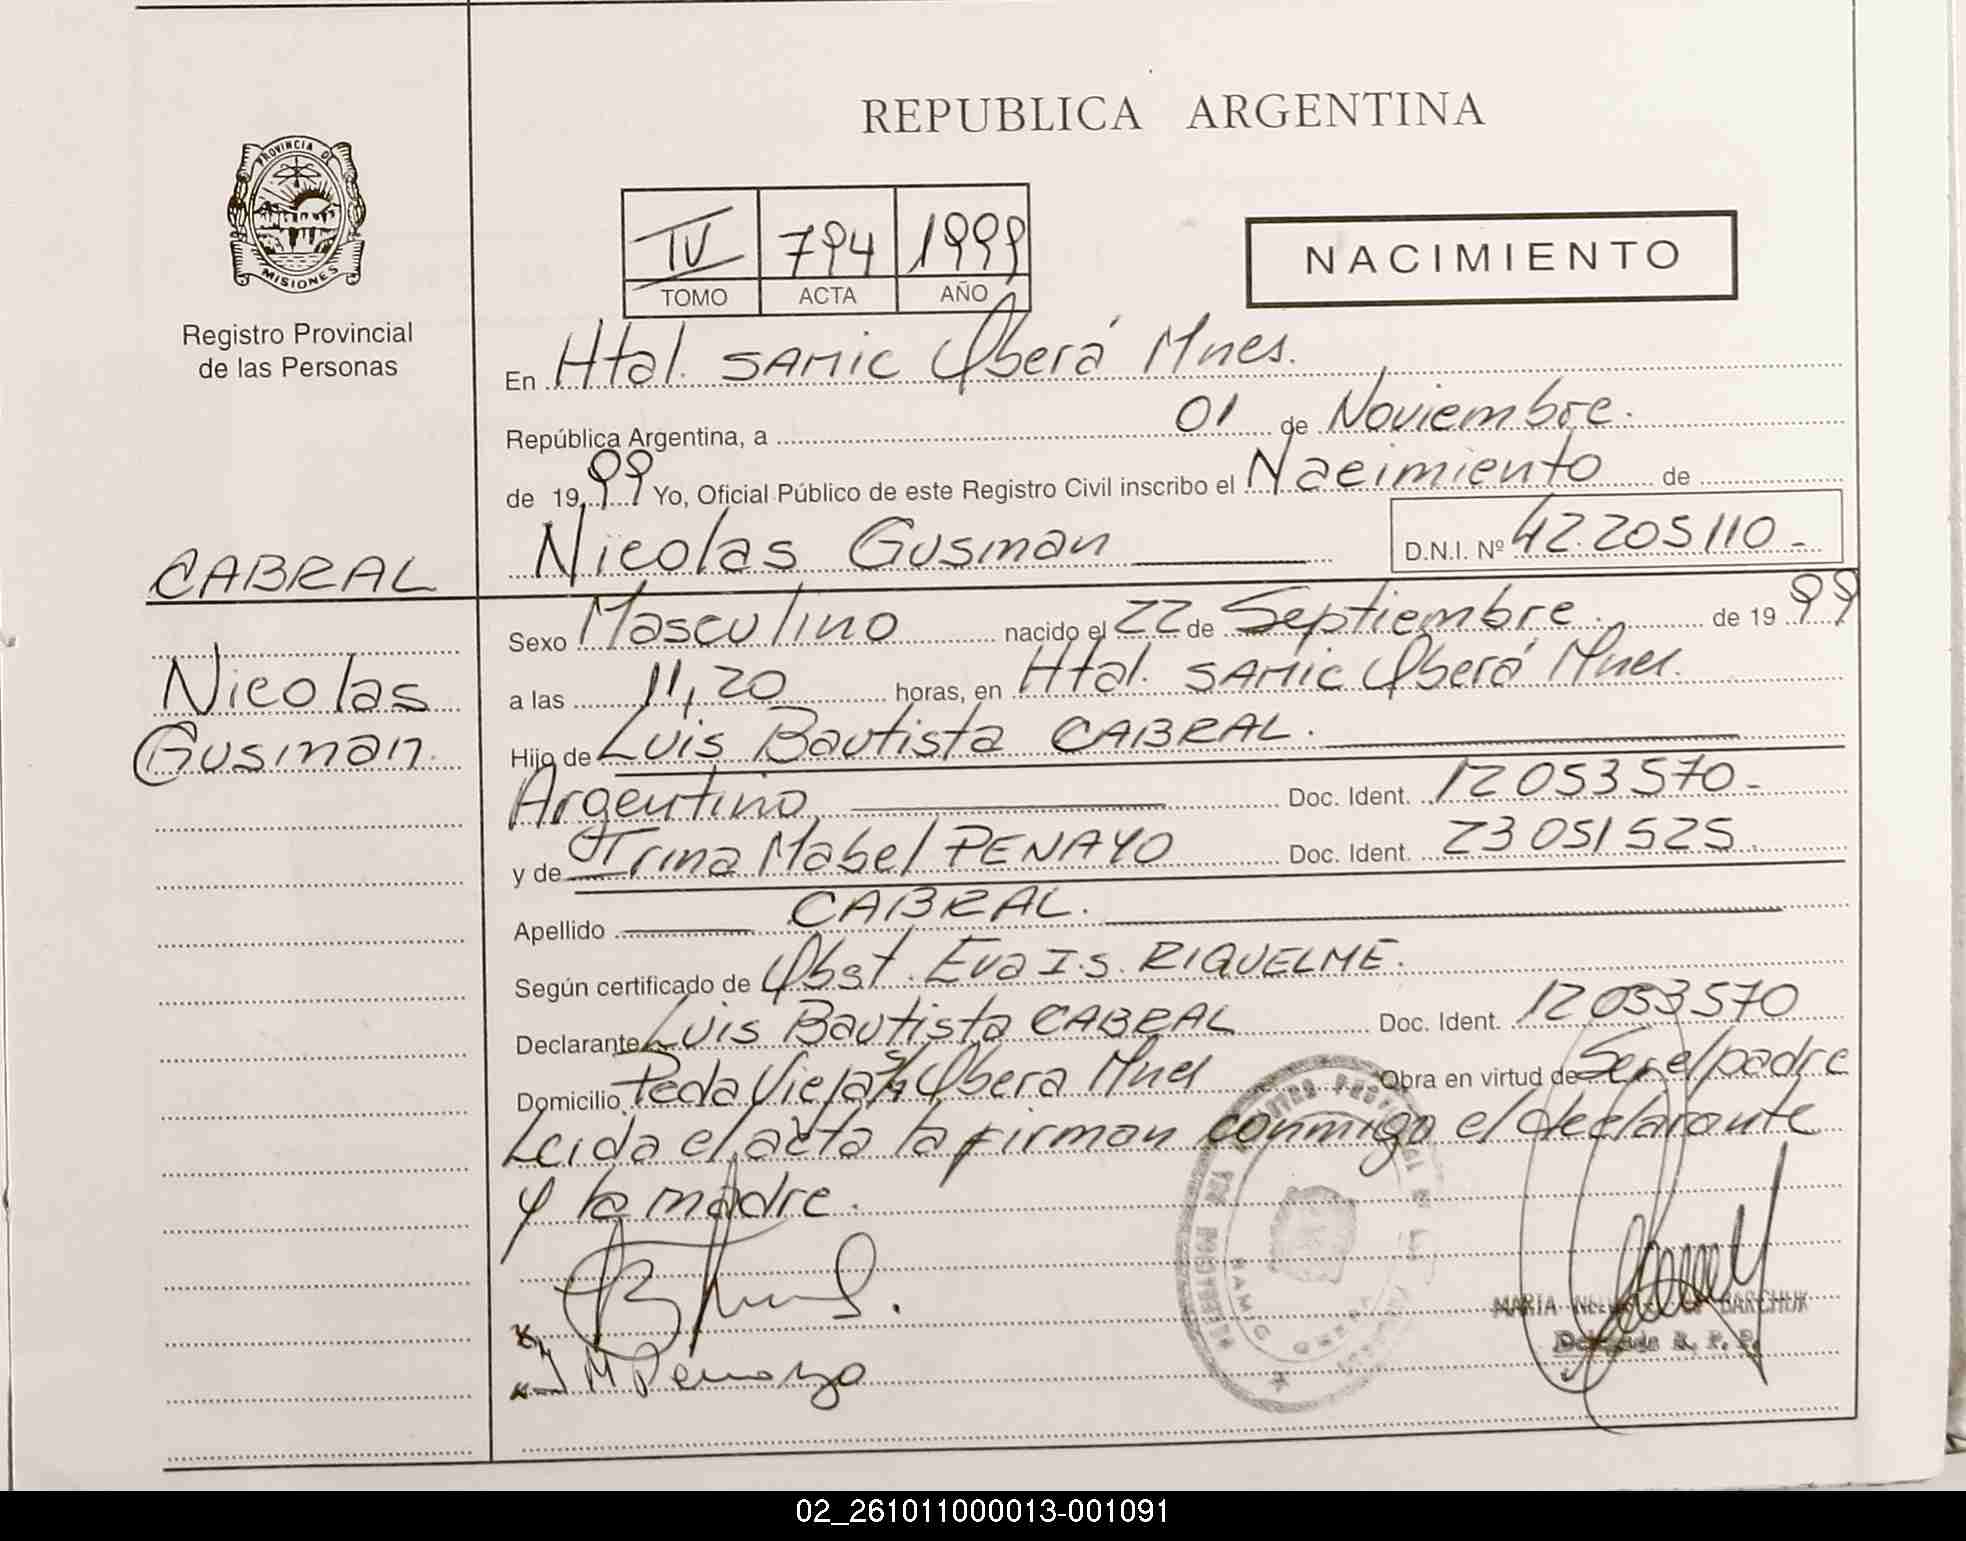 REPUBLICA ARGENTINA
PROVINCIA DE
MISIONES
Registro Provincial
de las Personas
IV 794 1999
TOMO ACTA AÑO
NACIMIENTO
En Htal. SAMIC Oberá Mnes.
República Argentina, a 01 de Noviembre.
de 1999 Yo, Oficial Público de este Registro Civil inscribo el Nacimiento de
Nicolas Gusman D.N.I. Nº 42.205110-
CABRAL
Nicolas
Gusman.
Sexo Masculino nacido el 22 de Septiembre. de 1999
a las 11,20 horas, en Htal. SAMIC Oberá Mnes.
Hijo de Luis Bautista CABRAL.
Argentino Doc. Ident. 12053570-
y de Irma Mabel PENAYO Doc. Ident. 23051525.
Apellido CABRAL.
Según certificado de Obst. Eva I.S. RIQUELME.
Declarante Luis Bautista CABRAL Doc. Ident. 12053570
Domicilio Oberá Mnes Obra en virtud de Ser el padre
Leida el acta la firman conmigo el declarante
y la madre.
MARIA BARCHUK
R. P. P.
02_261011000013-001091